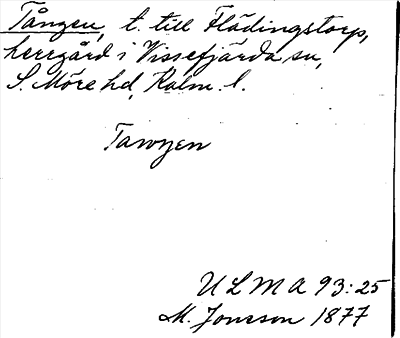 Tången, t. till Flädingstorp,
herrgård i Vissefjärda sn,
S. Möre hd, Kalm. l.
Tawgen
ULMA 93:25
M. Jonsson 1877